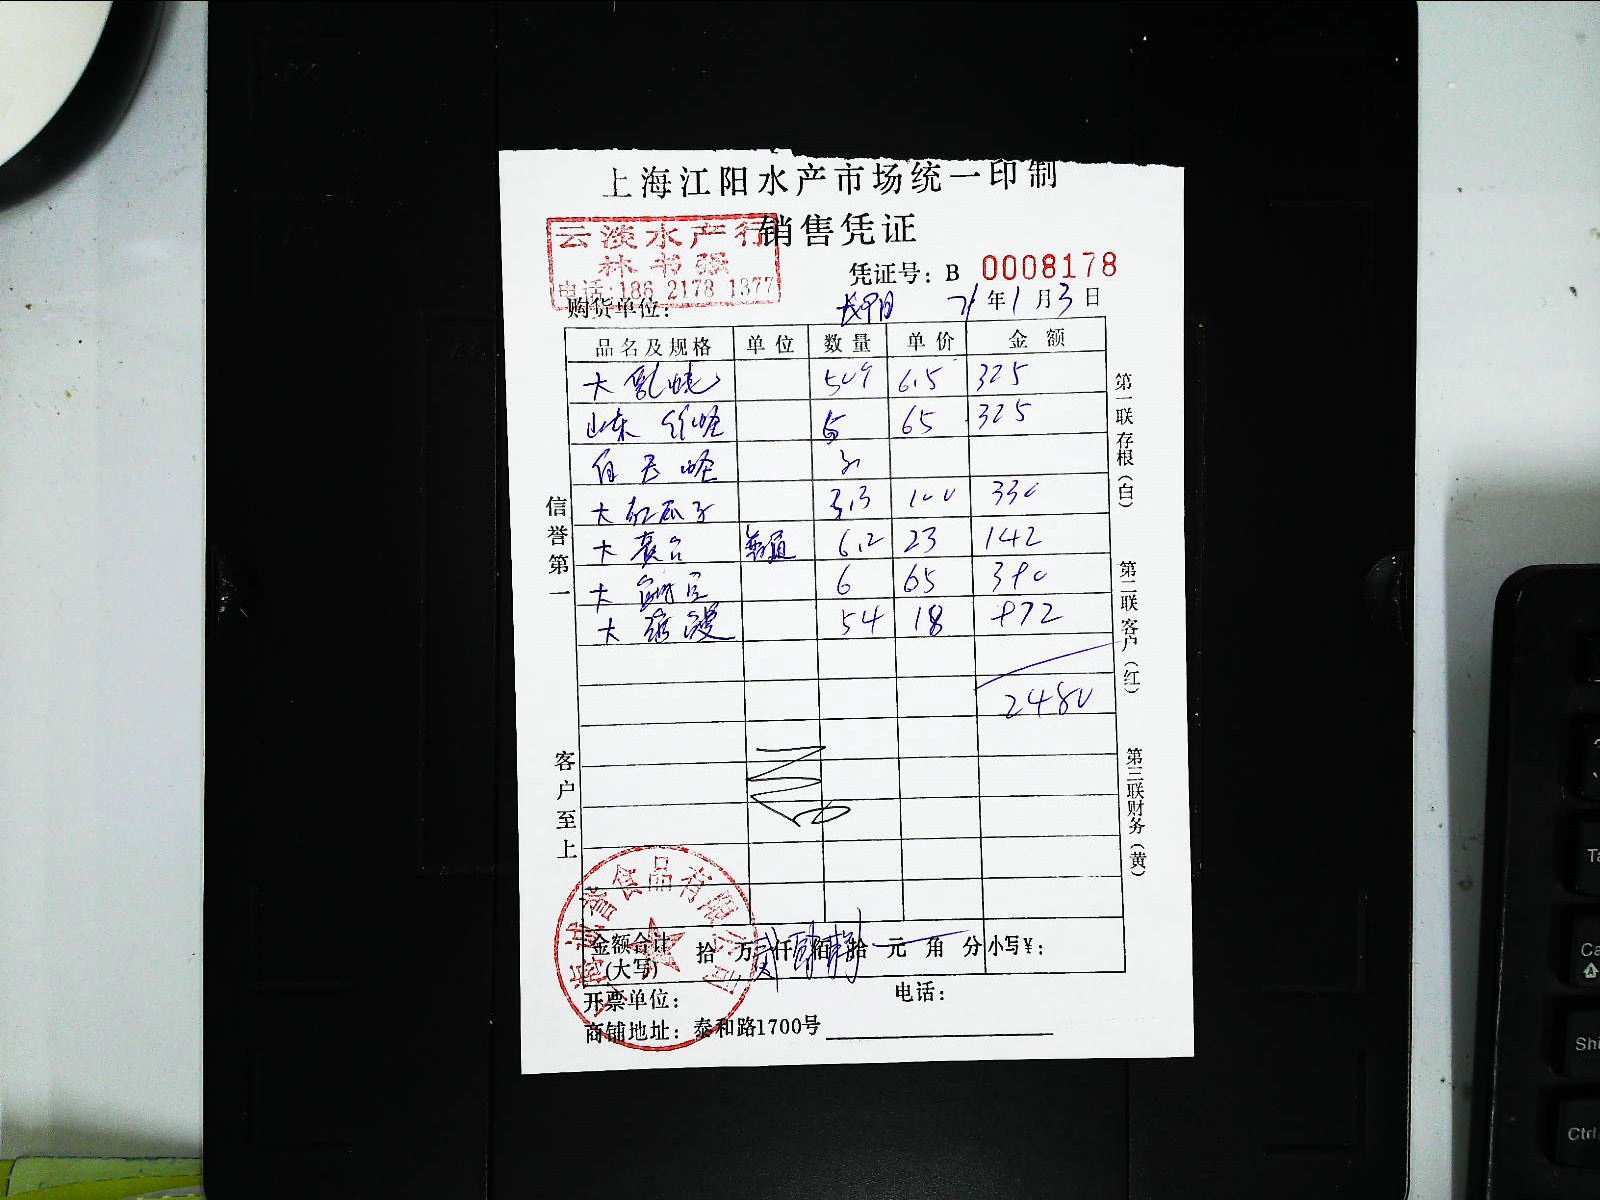 上海江阳水产市场统一印制
销售凭证
云淡水产行
林书强
电话:186 2178 1377
凭证号: B 0008178
购货单位:
21年1月3日
品名及规格 单位 数量 单价 金额
大 6.5 325
山东 5 65 325
大红瓜子 3.3 100 330
大 普通 6.2 23 142
大 6 65 390
大 54 18 972
2480
信誉第一
客户至上
第一联存根(白)
第二联客户(红)
第三联财务(黄)
诚誉食品有限公司
金额合计(大写) 拾 万 仟 佰 拾 元 角 分 小写¥:
开票单位: 电话:
商铺地址: 泰和路1700号